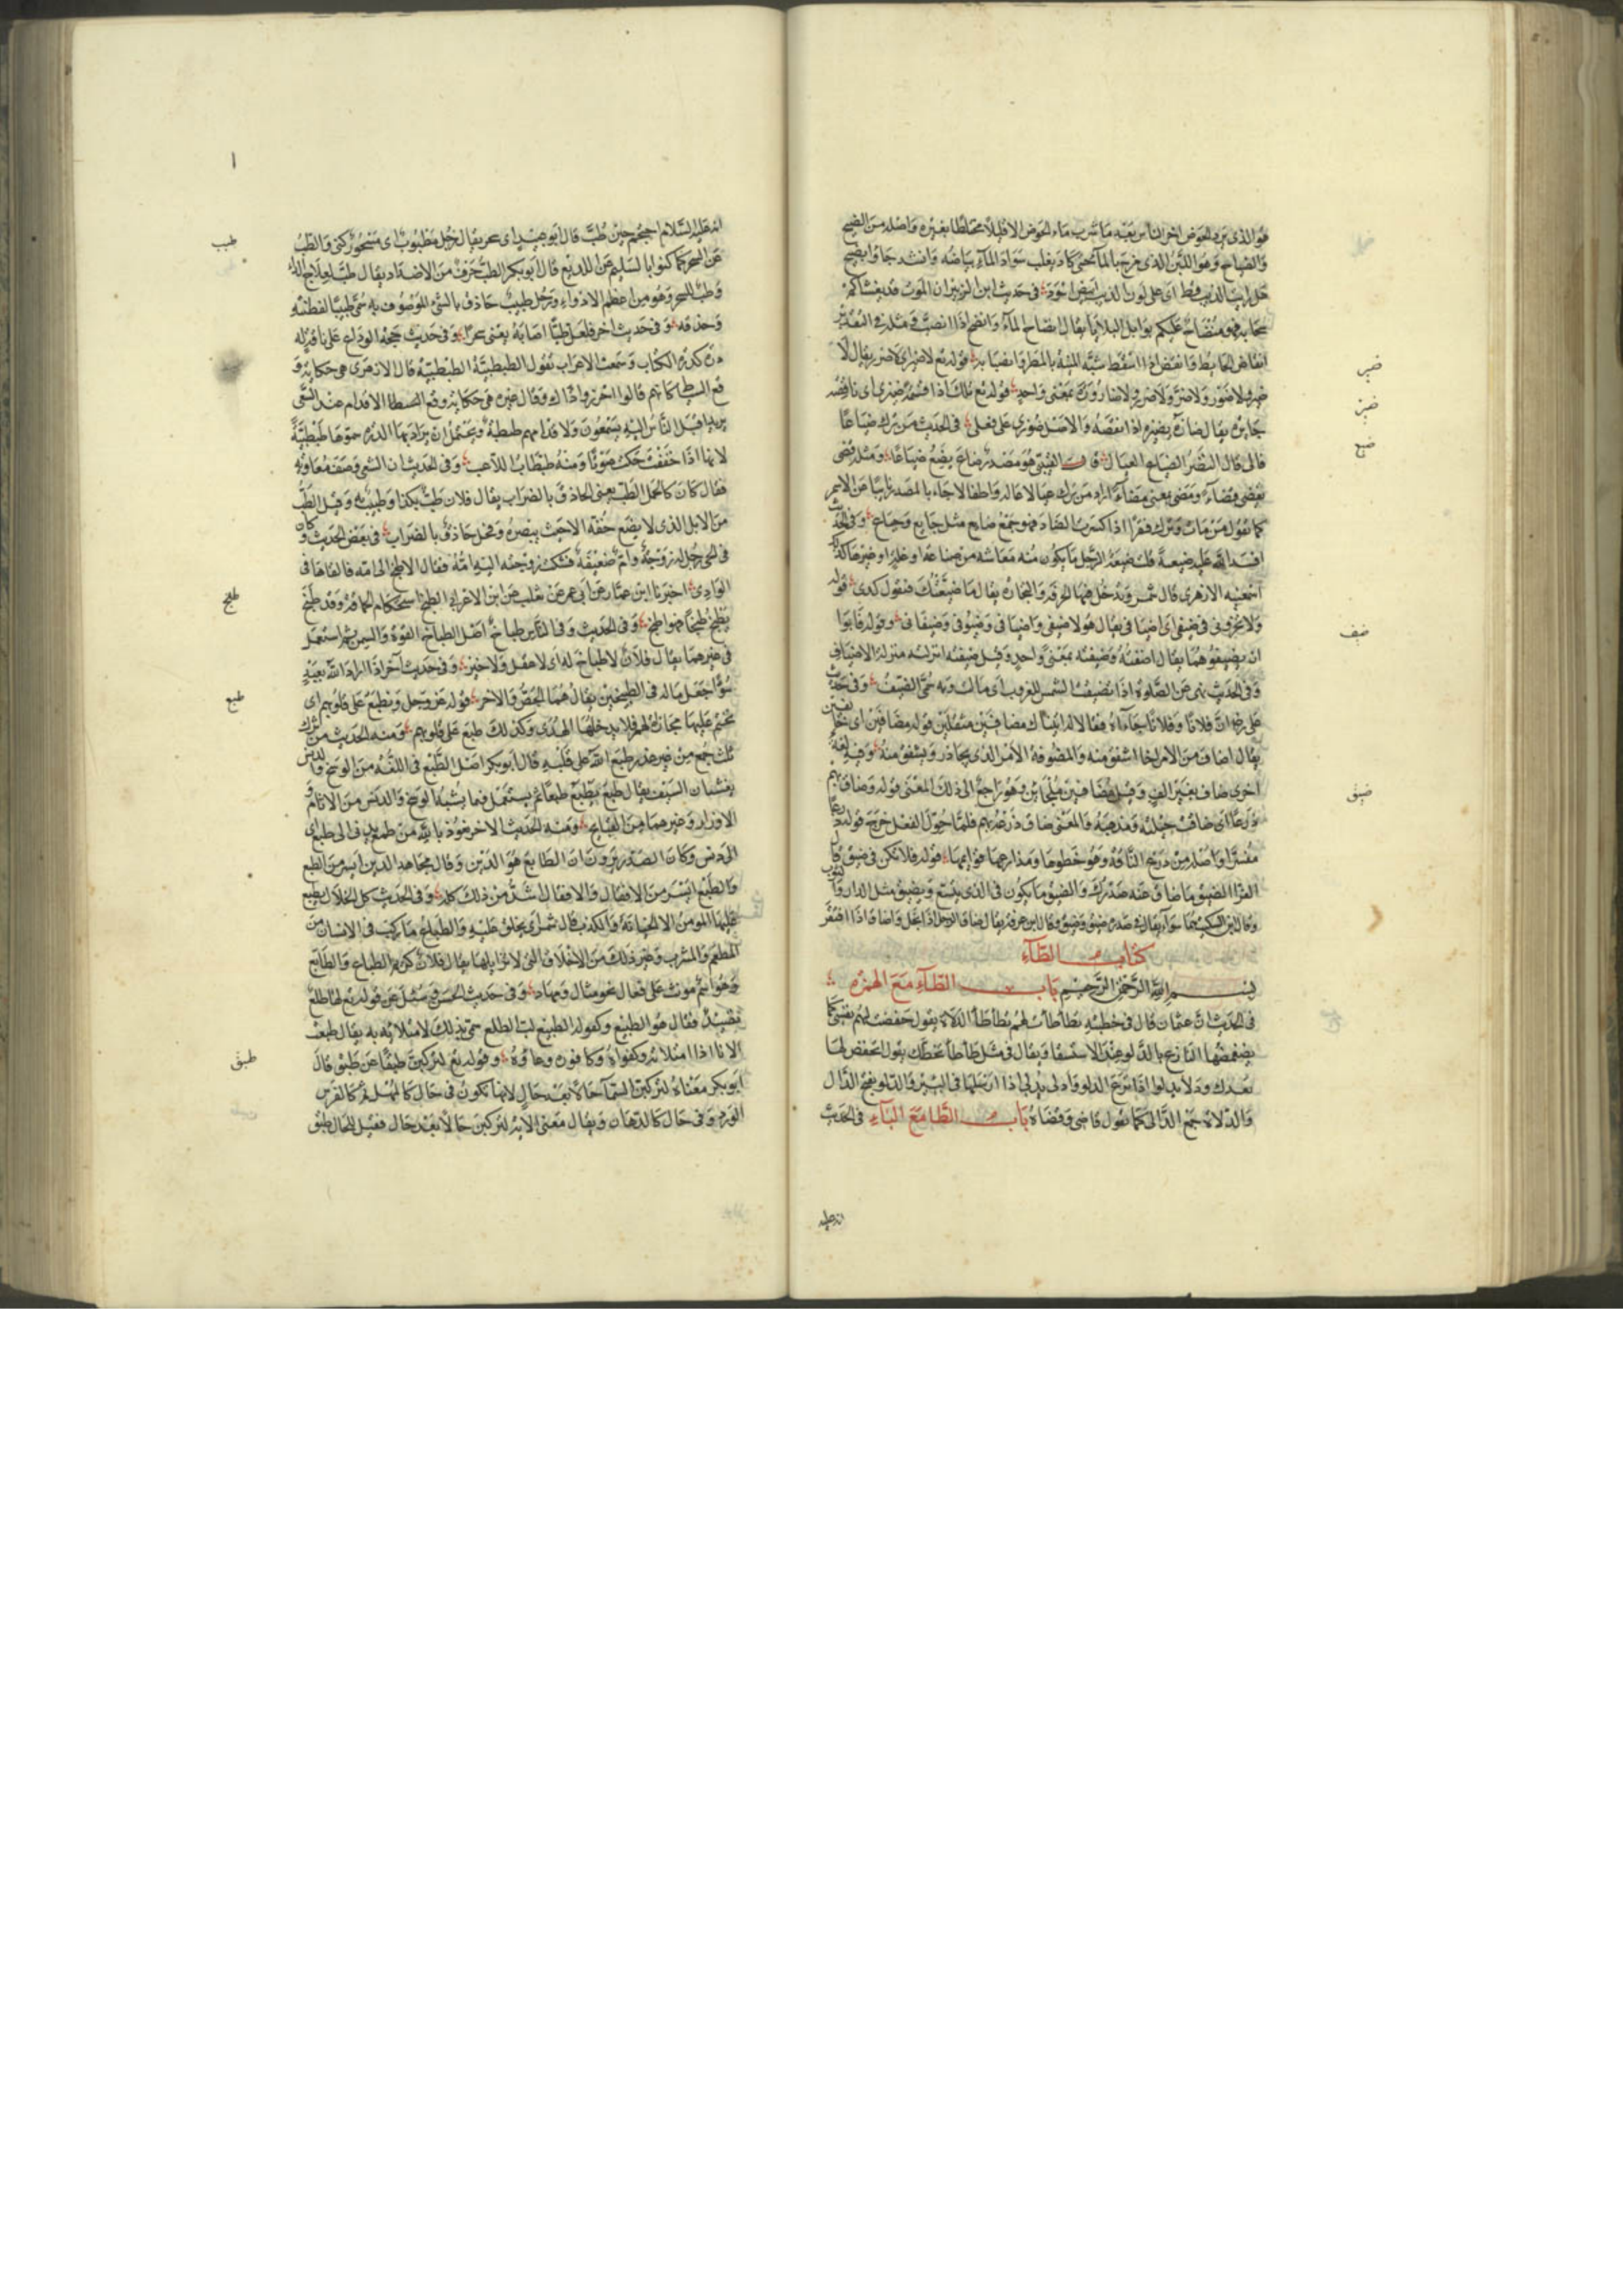 هو الذى يرد الحوض اخر الناس بعيد ما شرب ماء الحوض الا قليلا مختلطا بغيره واصله من الضيح
والضياح وهو اللبن الذى مزج بالماء حتى كاد يغلب سواد الماء بياضه وانشد جاؤا بضيح
هل رايت الذيب قط اى على لون الذيب فى حديث ابن الزبير ان الموت قد يغشاكم
سحابه فهو منضاح عليكم بوابل البلايا يقال انضاح الماء وانضخ اذا انصب ومثله فى التقدير
انقاض الحايط وانقض اذا سقط شبه المنية بالمطر وانصبابه قوله تع لا ضير اى لا ضر يقال لا
ضير ولا ضور ولا ضر ولا ضرر ولا ضارورة بمعنى واحد قوله تع تلك اذا قسمة ضيزى اى ناقصة
جايرة يقال ضازه يضيزه اذا نقصه والاصل ضوزى على فعلى فى الحديث من ترك ضياعا
فالى قال النضر الضياع العيال قال القتيبى هو مصدر ضاع يضيع ضياعا ومثله قضى
يقضى قضاء ومضى يمضى مضاء اراد من ترك عيالا عالة واطفالا جاء بالمصدر نايبا عن الاسم
كما تقول من مات وترك فقرا اذا كسرت الضاد فهو جمع ضايع مثل جايع وجياع وفى الحديث
افسد الله عليه ضيعته قلت ضيعة الرجل ما يكون منه معاشه من صناعة او غلة او غيرها كذلك
اسمعنيه الازهرى قال شمر ويدخل فيها الحرفة والتجارة يقال ما ضيعتك فتقول كذى قوله
ولا تخزونى فى ضيفى اى اضيافى يقال هولا ضيفى واضيافى وضيوفى وضيفانى وقوله فابوا
ان يضيفوهما يقال اضفته وضيفته بمعنى واحد وقيل ضيفته انزلته منزلة الاضياف
وفى الحديث نهى عن الصلوة اذا تضيفت الشمس للغروب اى مالت وبه سمى الضيف وفى حديث
على رضه ان فلانا وفلانا جاءاه فقالا له اتيناك مضافين مثقلين قوله مضافين اى خايفين
يقال اضاف من الامر اذا اشفق منه والمضوفة الامر الذى يحاذر ويشفق منه وفيه لغة
اخرى ضاف بغير الف وقيل مضافين ملجاين وهو راجع الى ذلك المعنى قوله وضاق بهم
ذرعا اى ضاقت حيلته ومذهبه والمعنى ضاق ذرعه بهم فلما حول الفعل خرج قوله ذرعا
مفسرا واصله من ذرع الناقة وهو خطوها ومذارعها قوائمها قوله فلا تكن فى ضيق قال
الفرا الضيق ما ضاق عنه صدرك والضيق ما يكون فى الذى يتسع ويضيق مثل الدار والثوب
وقال ابن السكيت هما سواء يقال فى صدره ضيق وضيق وقال ابن عرفة يقال ضاق الرجل اذا بخل واضاق اذا افتقر
كتاب الطاء
بسم الله الرحمن الرحيم باب الطاء مع الهمزة
فى الحديث ان عثمان قال فى خطبته تطأطأت لهم تطأطأ الدلاة يقول خفضت لهم نفسى كما
يخفضها النازع بالدلو عند الاستسقا ويقال فى مثل طأطأ تخطك يقول تخفض لها
تعدك ودلا يدلوا اذا نزع الدلو وادلى يدلى اذا ارسلها فى البير والدلو يفتح الدال
والدلاة جمع الدالى كما تقول قاضى وقضاة باب الطا مع الباء فى الحديث
انه عليه
ضير
ضيز
ضيع
ضيف
ضيق
انه عليه السلام احتجم حين طب قال ابو عبيد اى سحر يقال رجل مطبوب اى مسحور كنى بالطب
عن السحر كما كنوا بالسليم عن اللديغ قال ابو بكر الطب حرف من الاضداد يقال طب لعلاج الداء
وطب للسحر وهو من اعظم الادواء ورجل طبيب حاذق بالشىء الموصوف به سمى طبيبا لفطنته
وحذقه وفى حديث اخر فلعل طبا اصابه يعنى سحرا وفى حديث حجة الوداع على ناقة له
معه درة كدرة الكتاب وسمعت الاعراب تقول الطبطبية الطبطبية قال الازهرى هى حكاية و
قع السياط كانهم قالوا احذروا ذاك وقال غيره هى حكاية وقع الاقدام عند السعى
يريد اقبل الناس اليه يسعون ولاقدامهم طبطبة ويحتمل ان يراد بها الدرة سموها طبطبية
لانها اذا خفقت حكت صوتا ومنه طبطاب اللاعب وفى الحديث ان الشعبى وصف معاوية
فقال كان كالجمل الطب يعنى الحاذق بالضراب يقال فلان طب بكذا وطبيب به وقيل الطب
من الابل الذى لا يضع خفه الا حيث يبصره وفحل حاذق بالضراب فى بعض الحديث وكان
فى الحى رجل له زوجة وام ضعيفة فشكت زوجته اليه امه فقال الاطبخ الى امه فالقاها فى
الوادى اخبرنا ابن عمار عن ابى عمر عن ثعلب عن ابن الاعرابى الطبخ استحكام الحماقة وقد طبخ
يطبخ طبخا فهو اطبخ وفى الحديث وفى الناس طباخ اصل الطباخ القوة والسمن ثم استعمل
فى غيرهما يقال فلان لا طباخ له اى لا عقل ولا خير وفى حديث آخر اذا اراد الله بعبد
سوءا جعل ماله فى الطبيخين يقال هما الجص والاجر قوله عز وجل ونطبع على قلوبهم اى
نختم عليها مجازاة لهم فلا يدخلها الهدى وكذلك طبع على قلوبهم ومنه الحديث من ترك
ثلث جمع من غير عذر طبع الله على قلبه قال ابو بكر اصل الطبع فى اللغة من الوسخ والدنس
يغشيان السيف يقال طبع يطبع طبعا ثم يستعمل فيما يشبه الوسخ والدنس من الاثام و
الاوزار وغيرهما من القبايح ومنه الحديث الاخر نعوذ بالله من طمع يدنى الى طبع اى
الى دنس وكان الصدر يرون ان الطابع هو الدين وقال مجاهد الرين ايسر من الطبع
والطبع ايسر من الاقفال والاقفال اشد من ذلك كله وفى الحديث كل الخلال يطبع
عليها المومن الا الخيانة والكذب قال شمر اى يخلق عليه والطباع ما ركب فى الانسان من
المطعم والمشرب وغير ذلك من الاخلاق التى لا تزايلها يقال فلان كريم الطباع والطبايع
وهو اسم مونث على فعال نحو مثال ومهاد وفى حديث الحسن وسئل عن قوله تع لها طلع
نضيد فقال هو الطبيع وكقوله الطبيع لب الطلع سمى بذلك لامتلائه به يقال طبعت
الانا اذا امتلاته وكفراه وكافوره وعاؤه وقوله تع لتركبن طبقا عن طبق قال
ابو بكر معناه لتركبن السما حالا بعد حال لانها تكون فى حال كالمهل ثم كالفرس
الورد وفى حال كالدهان ويقال معنى الاية لتركبن حالا بعد حال فقيل للحال طبق
طبب
طبخ
طبع
طبق